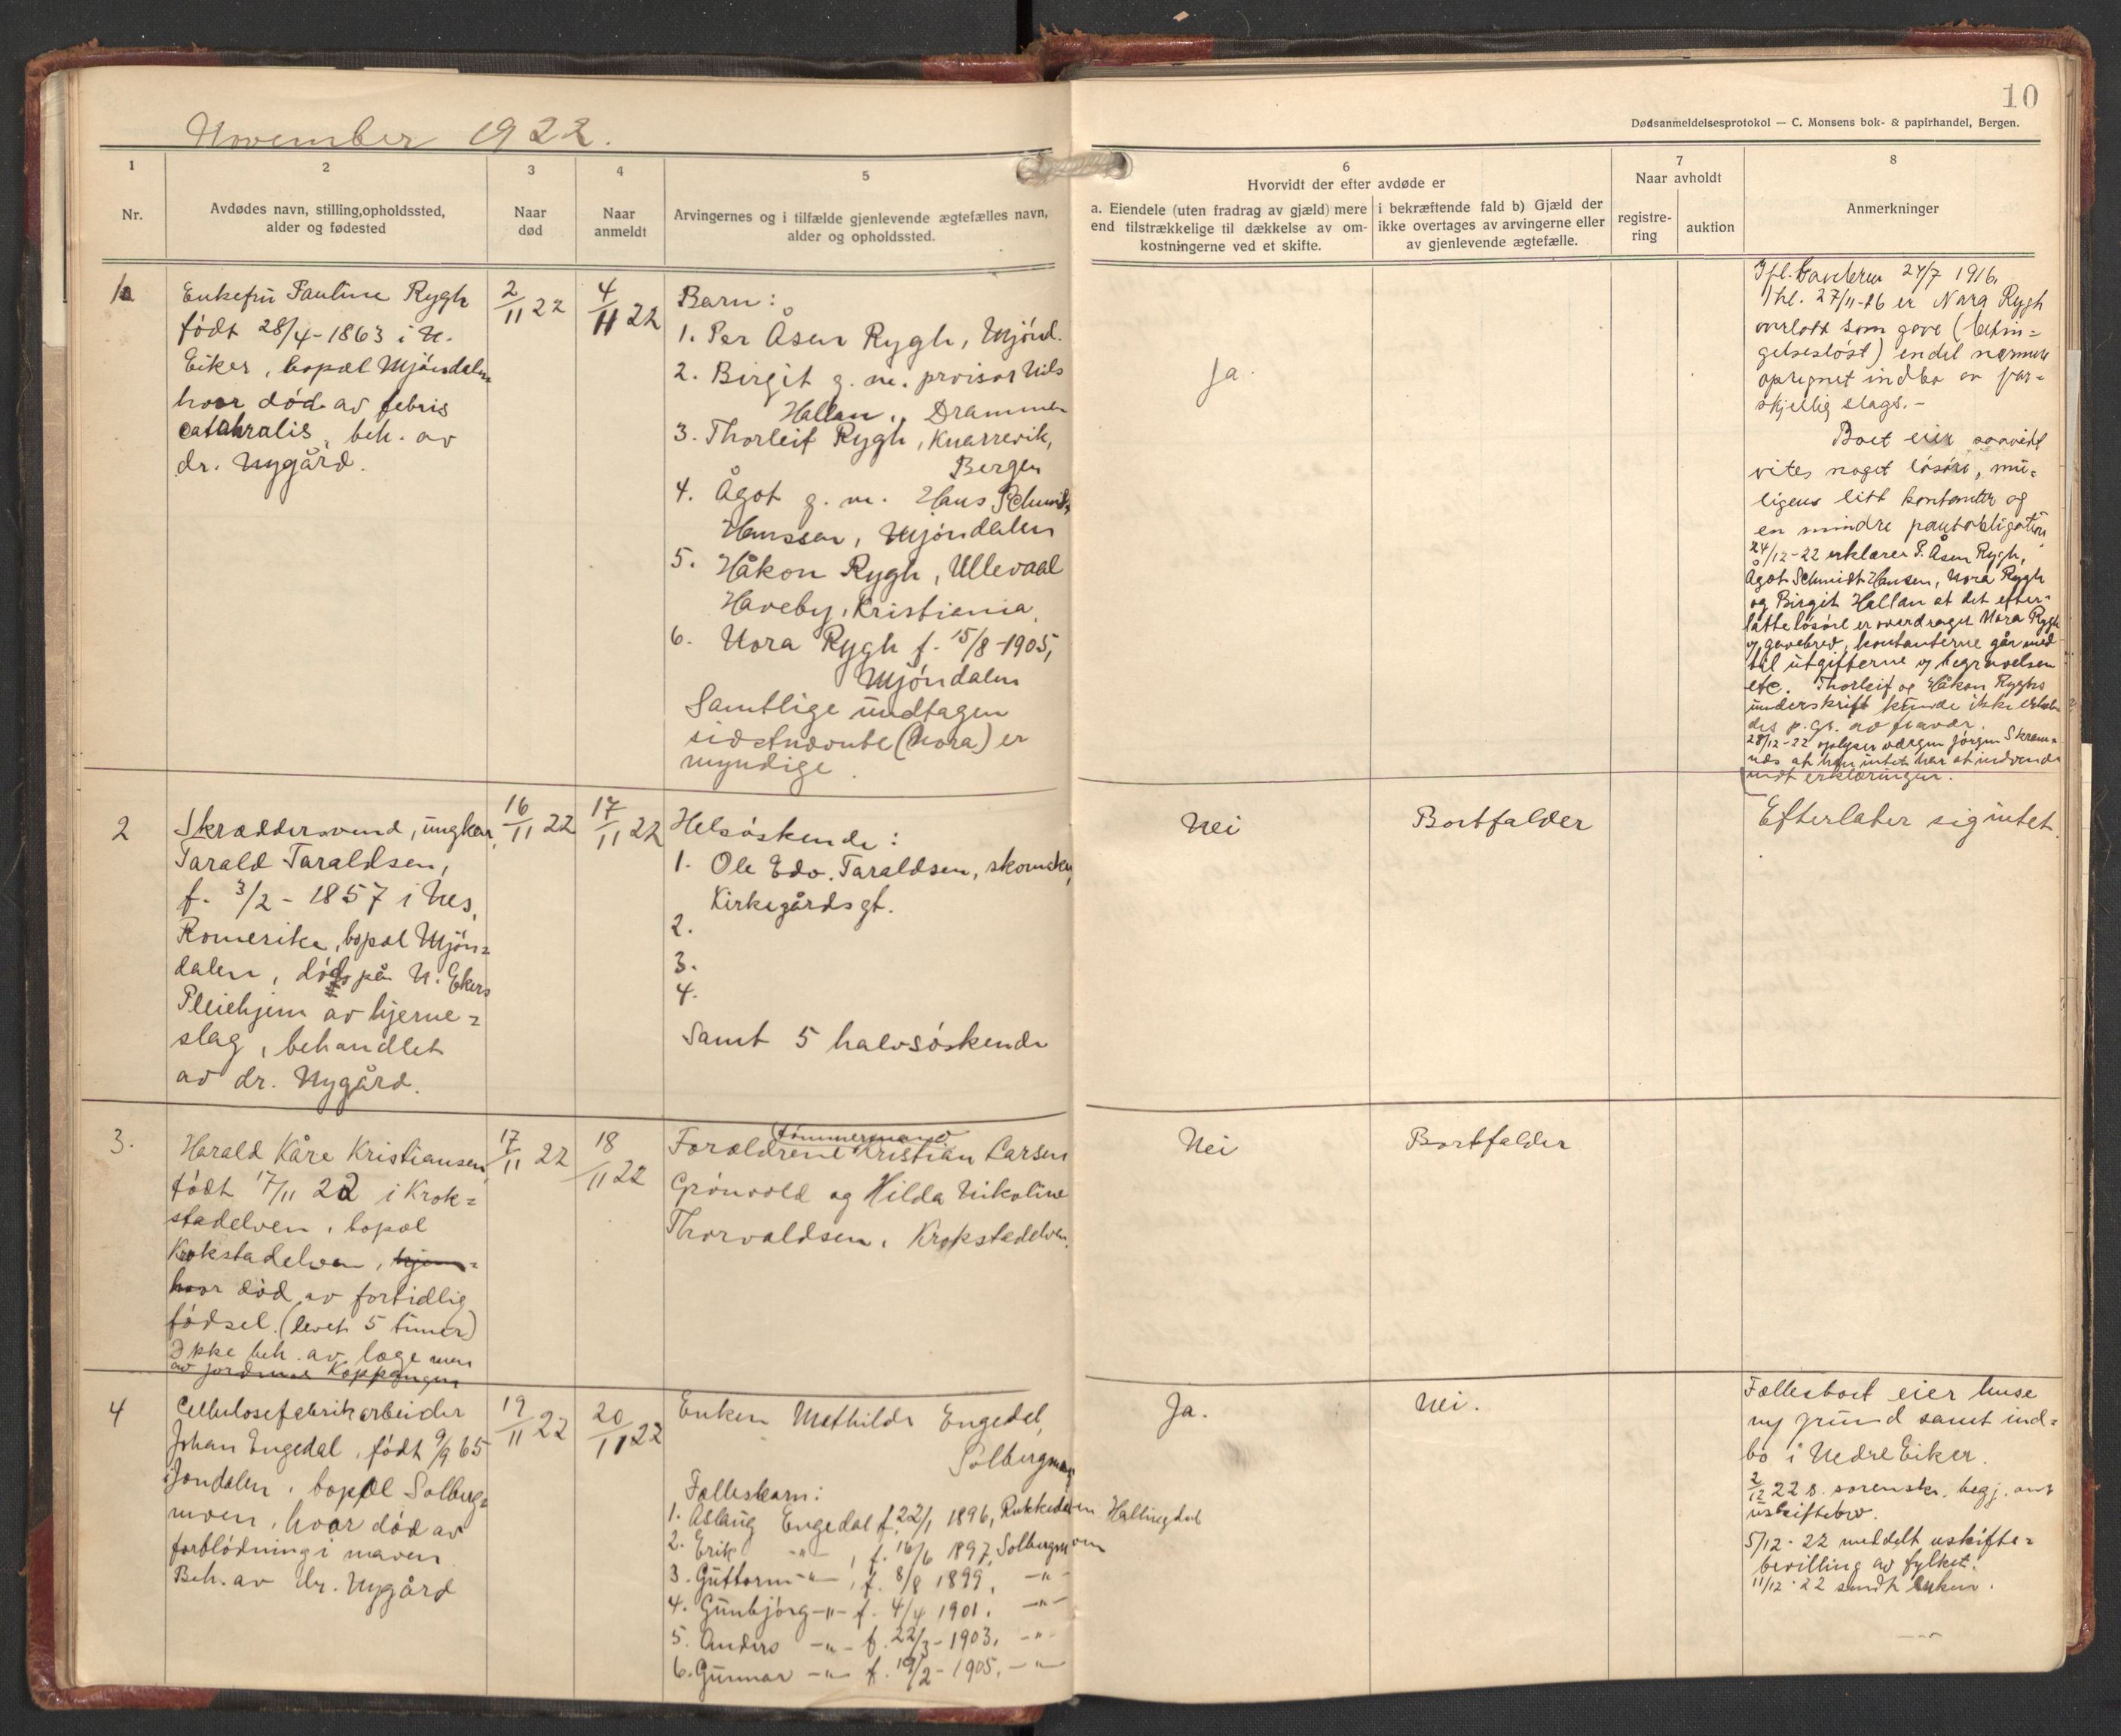 November 1922.
10
Dødsanmeldelsesprotokol — C. Monsens bok- & papirhandel, Bergen.
1
Nr.
2
Avdødes navn, stilling, opholdssted,
alder og fødested
3
Naar
død
4
Naar
anmeldt
5
Arvingernes og i tilfælde gjenlevende ægtefælles navn,
alder og opholdssted.
6
Hvorvidt der efter avdøde er
a. Eiendele (uten fradrag av gjæld) mere
end tilstrækkelige til dækkelse av om-
kostningerne ved et skifte.
i bekræftende fald b) Gjæld der
ikke overtages av arvingerne eller
av gjenlevende ægtefælle.
7
Naar avholdt
registre-
ring
auktion
8
Anmerkninger
Enkefru Pauline Rygh
født 28/4-1863 i N.
Eiker, bopæl Mjöndalen
hvor död av febris
catahralis, beh. av
dr. Nygård.
2/11 22
4/11 22
Barn:
1. Per Åsen Rygh, Mjönd.
2. Birgit g. m. provisor Nils
Hallan, Drammen
3. Thorleif Rygh, Knarrevik,
Bergen
4. Ågot g. m. Hans Schmidt
Hanssen, Mjöndalen
5. Håkon Rygh, Ullevaal
Haveby, Kristiania.
6. Nora Rygh f. 15/8-1905,
Mjöndalen
Samtlige undtagen
sidstnævnte (Nora) er
myndige.
Ja.
1916.
27/11-26 er Nora Rygh
overlatt som gave (betin=
gelseslöst) endel nærmere
opregnet indbo av for=
skjellig slags.-
Boet eier saavidt
vites noget lösöre, mu=
ligens litt kontanter og
en mindre pantobligation
24/12-22 erklærer P. Åsen Rygh,
Ågot Schmidt Hansen, Nora Rygh
og Birgit Hallan at det efter-
latte lösöre er overdraget Nora Rygh
gavebrev, kontanterne går med
til utgifterne begravelsen
etc. Thorleif og Håkon Ryghs
underskrift kunde ikke erhol
des p. gr. av fravær.
28/12-22 oplyser værgen Jörgen
at han intet har at indvende
mot erklæringen.
2
Skræddersvend, ungkar,
Tarald Taraldsen,
f. 3/2 - 1857 i Nes,
Romerike, bopæl Mjön=
dalen, död på N. Ekers
Pleiehjem av hjerne=
slag, behandlet
av dr. Nygård.
16/11 22
17/11 22
Helsöskende:
1. Ole Edv. Taraldsen, skomaker,
Kirkegårdsgt.
2.
3.
4.
Samt 5 halvsöskende
Nei
Bortfalder
Efterlater sig intet.
3.
Harald Kåre Kristiansen
født 17/11 22 i Krok=
stadelven, bopæl
Krokstadelven, hjem=
hvor död av fortidlig
födsel. (levet 5 timer)
Ikke beh. av læge men
av jordmor Koppangen
17/11 22
18/11 22
tömmermand
Forældrene Kristian Larsen
Grönvold og Hilda Nikoline
Thorvaldsen, Krokstadelven.
Nei
Bortfalder
4
Cellulosefabrikarbeider
Johan Engedal, födt 9/9 65
i Jondalen, bopæl Solberg=
moen, hvor död av
forblödning i maven
Beh. av dr. Nygård
19/11 22
20/11 22
Enken Mathilde Engedal,
Solbergmoen
Fællesbarn:
1. Aslaug Engedal f. 22/1 1896, Rukkedalen Hallingdal
2. Erik -"-, f. 16/6 1897, Solbergmoen
3. Guttorm -"-, f. 8/8 1899, -"-
4. Gunbjörg -"- f. 4/4 1901, -"-
5. Anders -"- f. 22/3-1903, -"-
6. Gunnar -"- f. 19/2-1905, -"-
Ja.
Nei.
Fællesboet eier huse
og grund samt ind=
bo i Nedre Eiker.
2/12 22 s. sorenskr. begj. om
uskiftebev.
5/12-22 meddelt uskifte=
bevilling av fylket.
11/12-22 sendt enken.